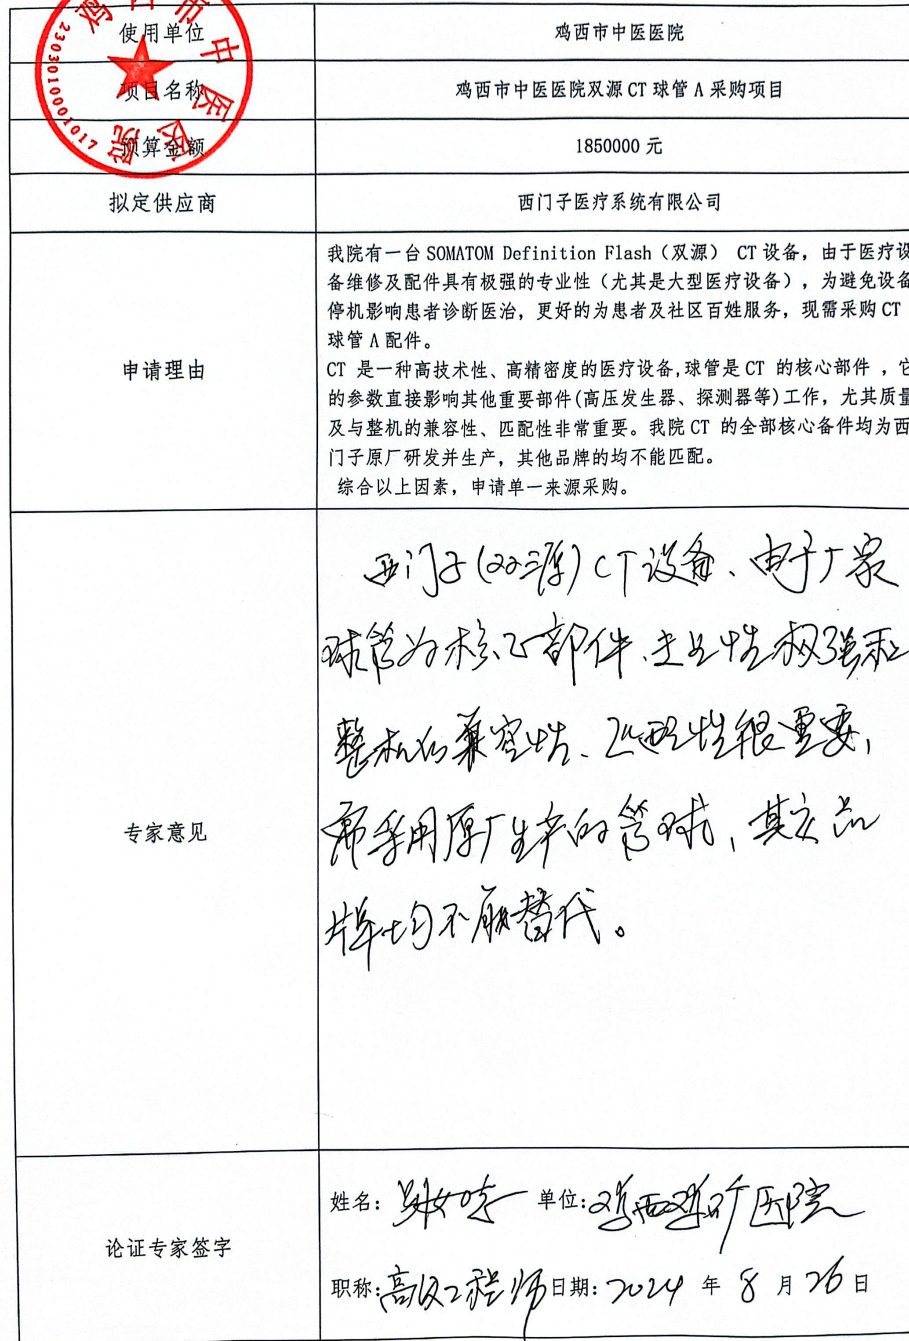 鸡西市中医医院
2303010001017
使用单位 鸡西市中医医院
项目名称 鸡西市中医医院双源CT球管A采购项目
预算金额 1850000元
拟定供应商 西门子医疗系统有限公司
申请理由
我院有一台SOMATOM Definition Flash（双源） CT设备，由于医疗设
备维修及配件具有极强的专业性（尤其是大型医疗设备），为避免设备
停机影响患者诊断医治，更好的为患者及社区百姓服务，现需采购CT
球管A配件。
CT 是一种高技术性、高精密度的医疗设备,球管是CT 的核心部件 ，它
的参数直接影响其他重要部件(高压发生器、探测器等)工作，尤其质量
及与整机的兼容性、匹配性非常重要。我院CT 的全部核心备件均为西
门子原厂研发并生产，其他品牌的均不能匹配。
综合以上因素，申请单一来源采购。
专家意见
西门子(双源)CT设备、由于厂家
球管为核心部件、专业性极强和
整机的兼容性、匹配性很重要，
需采用原厂生产的管球，其它品
牌均不能替代。
论证专家签字
姓名： 单位：鸡西鸡矿医院
职称：高级工程师 日期：2024 年 8 月 26 日